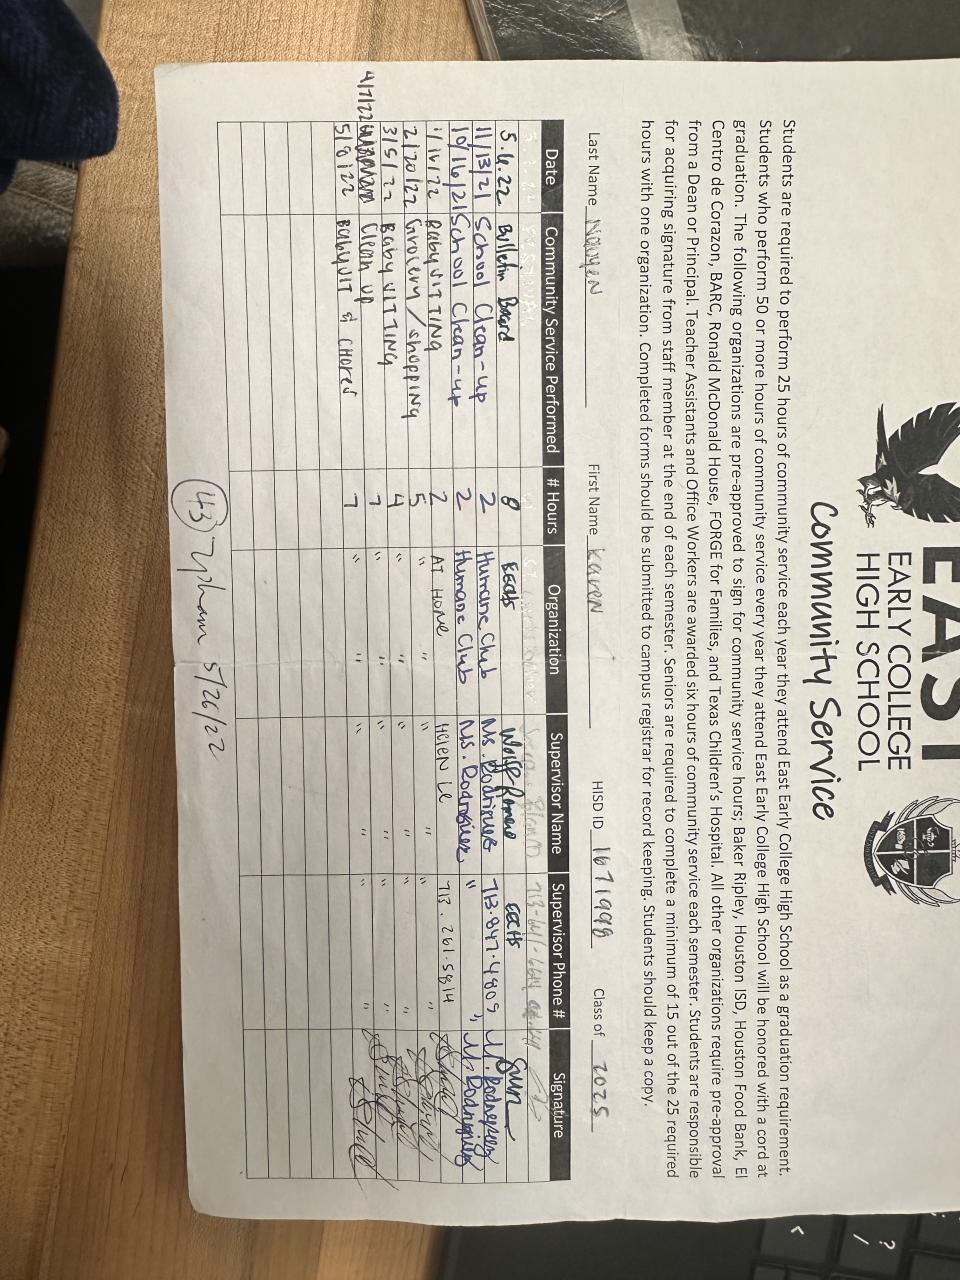 EAST
EARLY COLLEGE
HIGH SCHOOL
Community Service
Students are required to perform 25 hours of community service each year they attend East Early College High School as a graduation requirement.
Students who perform 50 or more hours of community service every year they attend East Early College High School will be honored with a cord at
graduation. The following organizations are pre-approved to sign for community service hours; Baker Ripley, Houston ISD, Houston Food Bank, El
Centro de Corazon, BARC, Ronald McDonald House, FORGE for Families, and Texas Children's Hospital. All other organizations require pre-approval
from a Dean or Principal. Teacher Assistants and Office Workers are awarded six hours of community service each semester. Students are responsible
for acquiring signature from staff member at the end of each semester. Seniors are required to complete a minimum of 15 out of the 25 required
hours with one organization. Completed forms should be submitted to campus registrar for record keeping. Students should keep a copy.
Last Name Nguyen First Name Karen HISD ID 1671998 Class of 2025
Date Community Service Performed # Hours Organization Supervisor Name Supervisor Phone # Signature
5.6.22 Bulletin Board 8 EECHS EECHS
11/13/21 School Clean-up 2 Humane Club Ms. Rodriguez 713.847.4809 M. Rodriguez
10/16/21 School Clean-up 2 Humane Club Ms. Rodriguez " " M. Rodriguez
1/16/22 BABYSITTING 2 AT HOME HELEN LE 713.261.5814
2/20/22 Grocery/shopping 5 " " " " " "
3/5/22 BABYSITTING 4 " " " " " "
4/7/22 Clean up 7 " " " " " "
5/8/22 BABYSIT & CHORES 7 " " " " " "
43 5/26/22